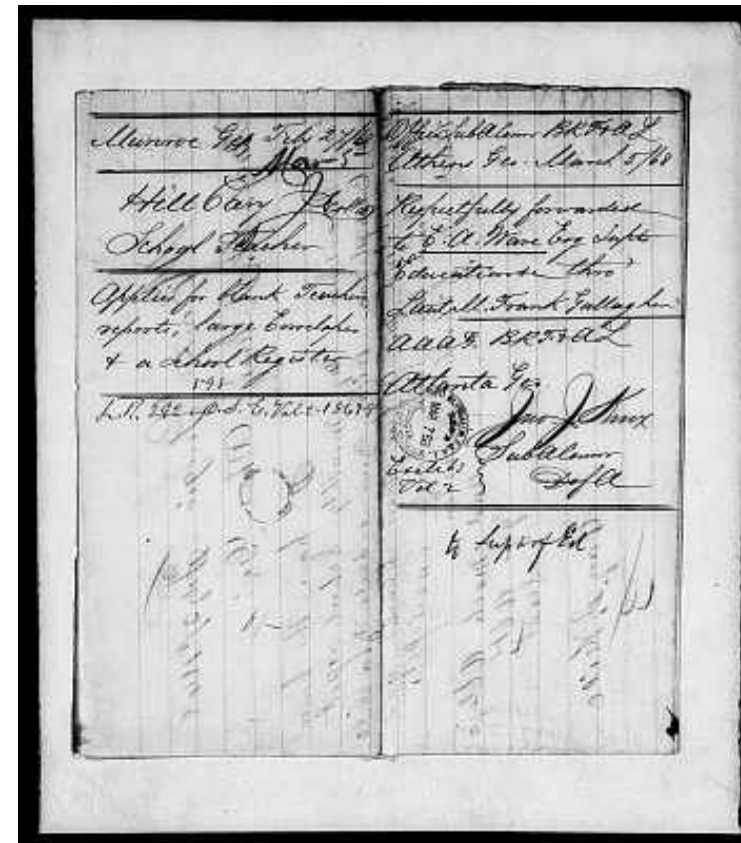 Munroe Geo Feb 27/68
Mar 5
Hill Cary J
School Teacher
Applies for blank Teachers
reports, large Envelopes
& a school Register
Office SubAComr BRF&AL
Athens Geo. March 5/68
Respectfully forwarded
to E. A. Ware Esq Supt
Education thro'
Lieut all. Frank Gallagher
AAAG. BRF&AL
Atlanta Geo.
Jno J Knox
SubAComr
Vol 2
to Supt of Ed